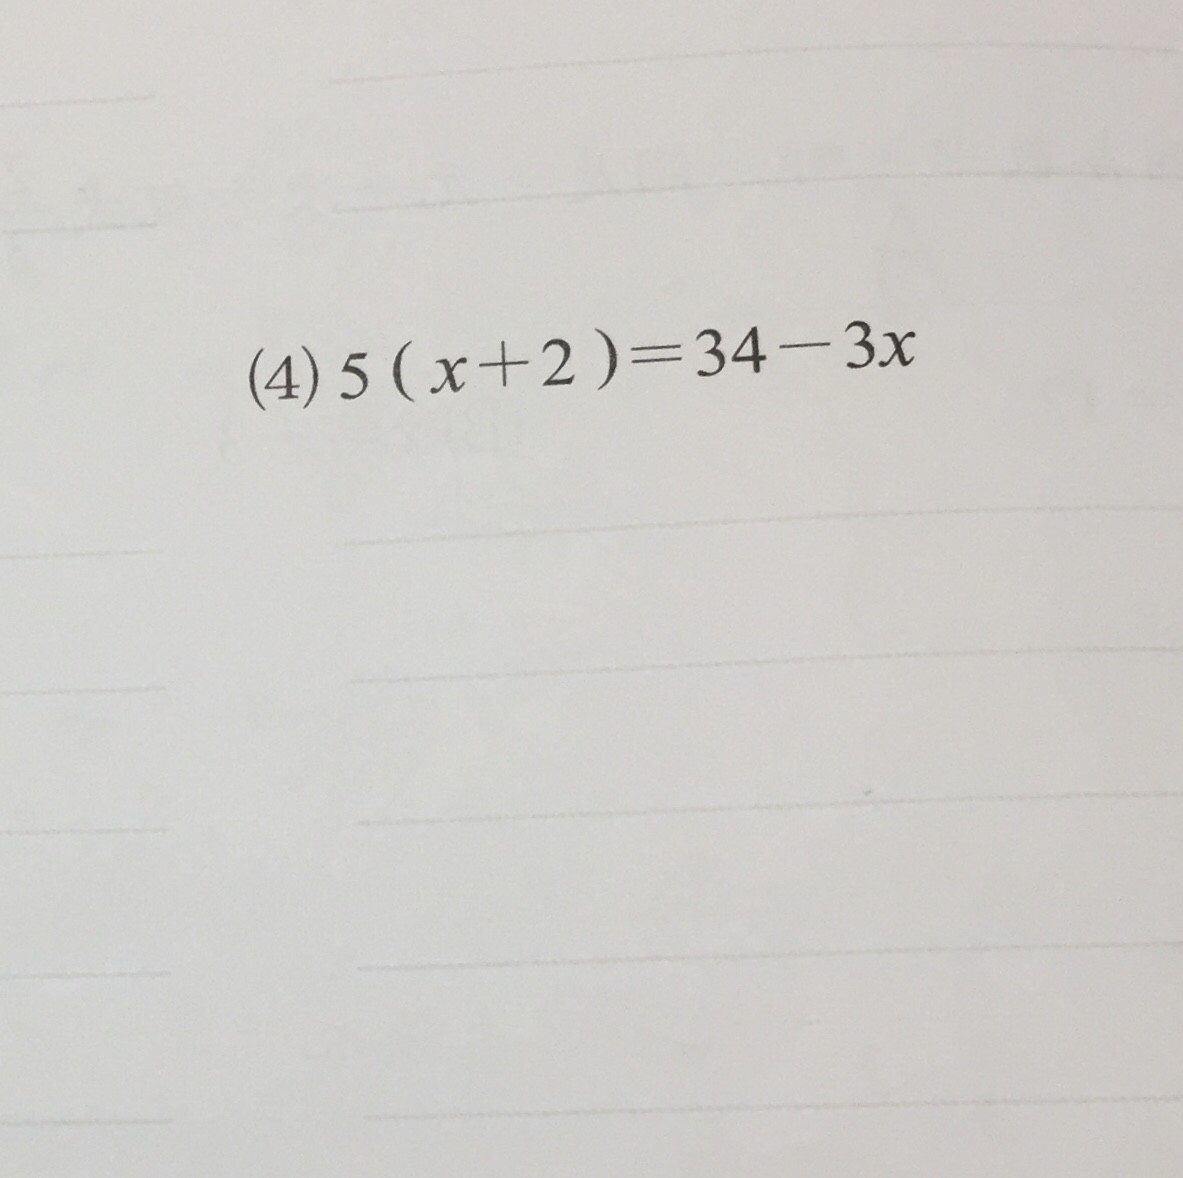 (4) 5 ( x+2 )=34−3x